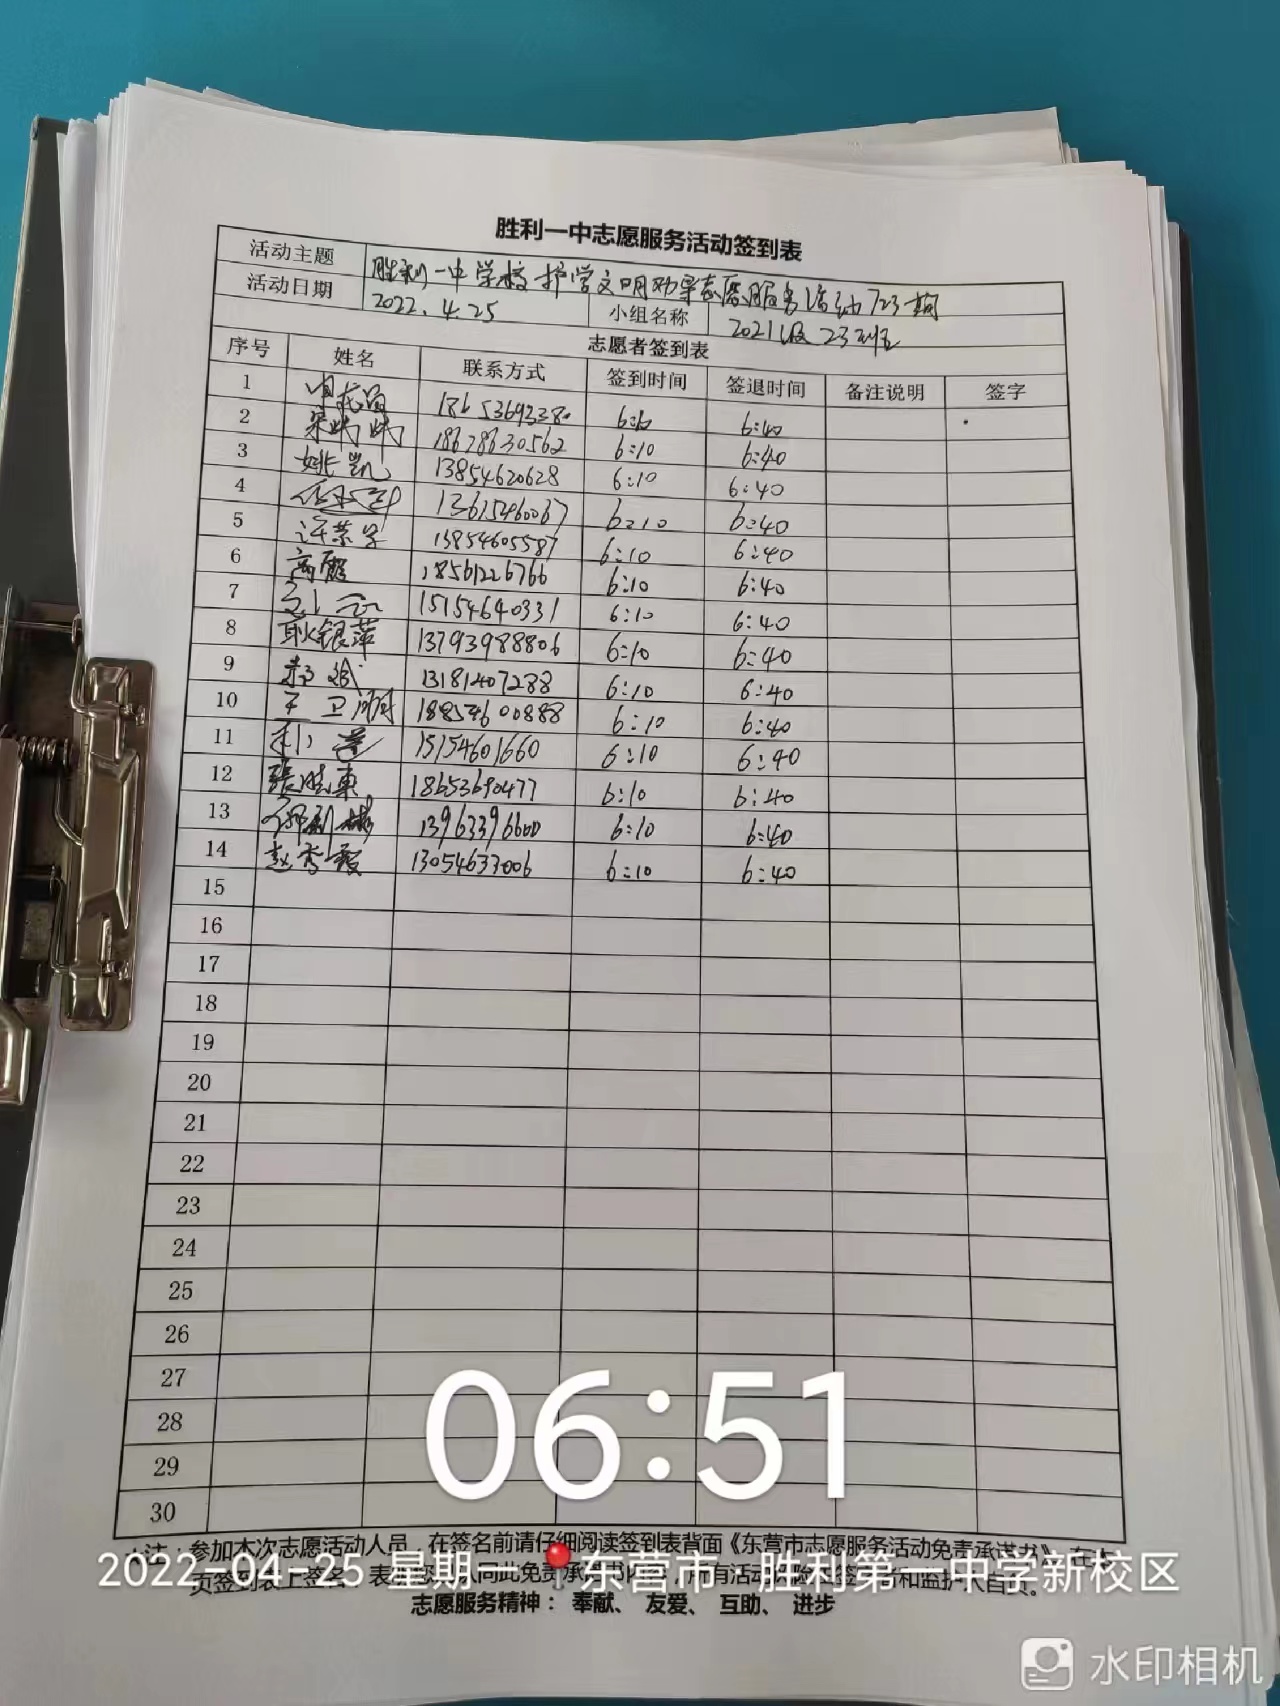 胜利一中志愿服务活动签到表
活动主题 胜利一中学校护学文明劝导志愿服务活动723期
活动日期 2022.4.25 小组名称 2021级23班
志愿者签到表
序号 姓名 联系方式 签到时间 签退时间 备注说明 签字
1 6:10 6:40
2 18678630562 6:10 6:40
3 姚凯 13854620628 6:10 6:40
4 6:10 6:40
5 许荣 13854605587 6:10 6:40
6 高 18561226766 6:10 6:40
7 15154640331 6:10 6:40
8 耿银萍 13793988806 6:10 6:40
9 13181407288 6:10 6:40
10 王卫 18854600888 6:10 6:40
11 15154601660 6:10 6:40
12 張 東 18653690477 6:10 6:40
13 13963396600 6:10 6:40
14 赵秀霞 13054633006 6:10 6:40
15
16
17
18
19
20
21
22
23
24
25
26
27
28
29
30
06:51
注:参加本次志愿活动人员,在签名前请仔细阅读签到表背面《东营市志愿服务活动免责承诺书》,在
2022-04-25 星期一 东营市·胜利第一中学新校区
志愿服务精神: 奉献、 友爱、 互助、 进步
水印相机